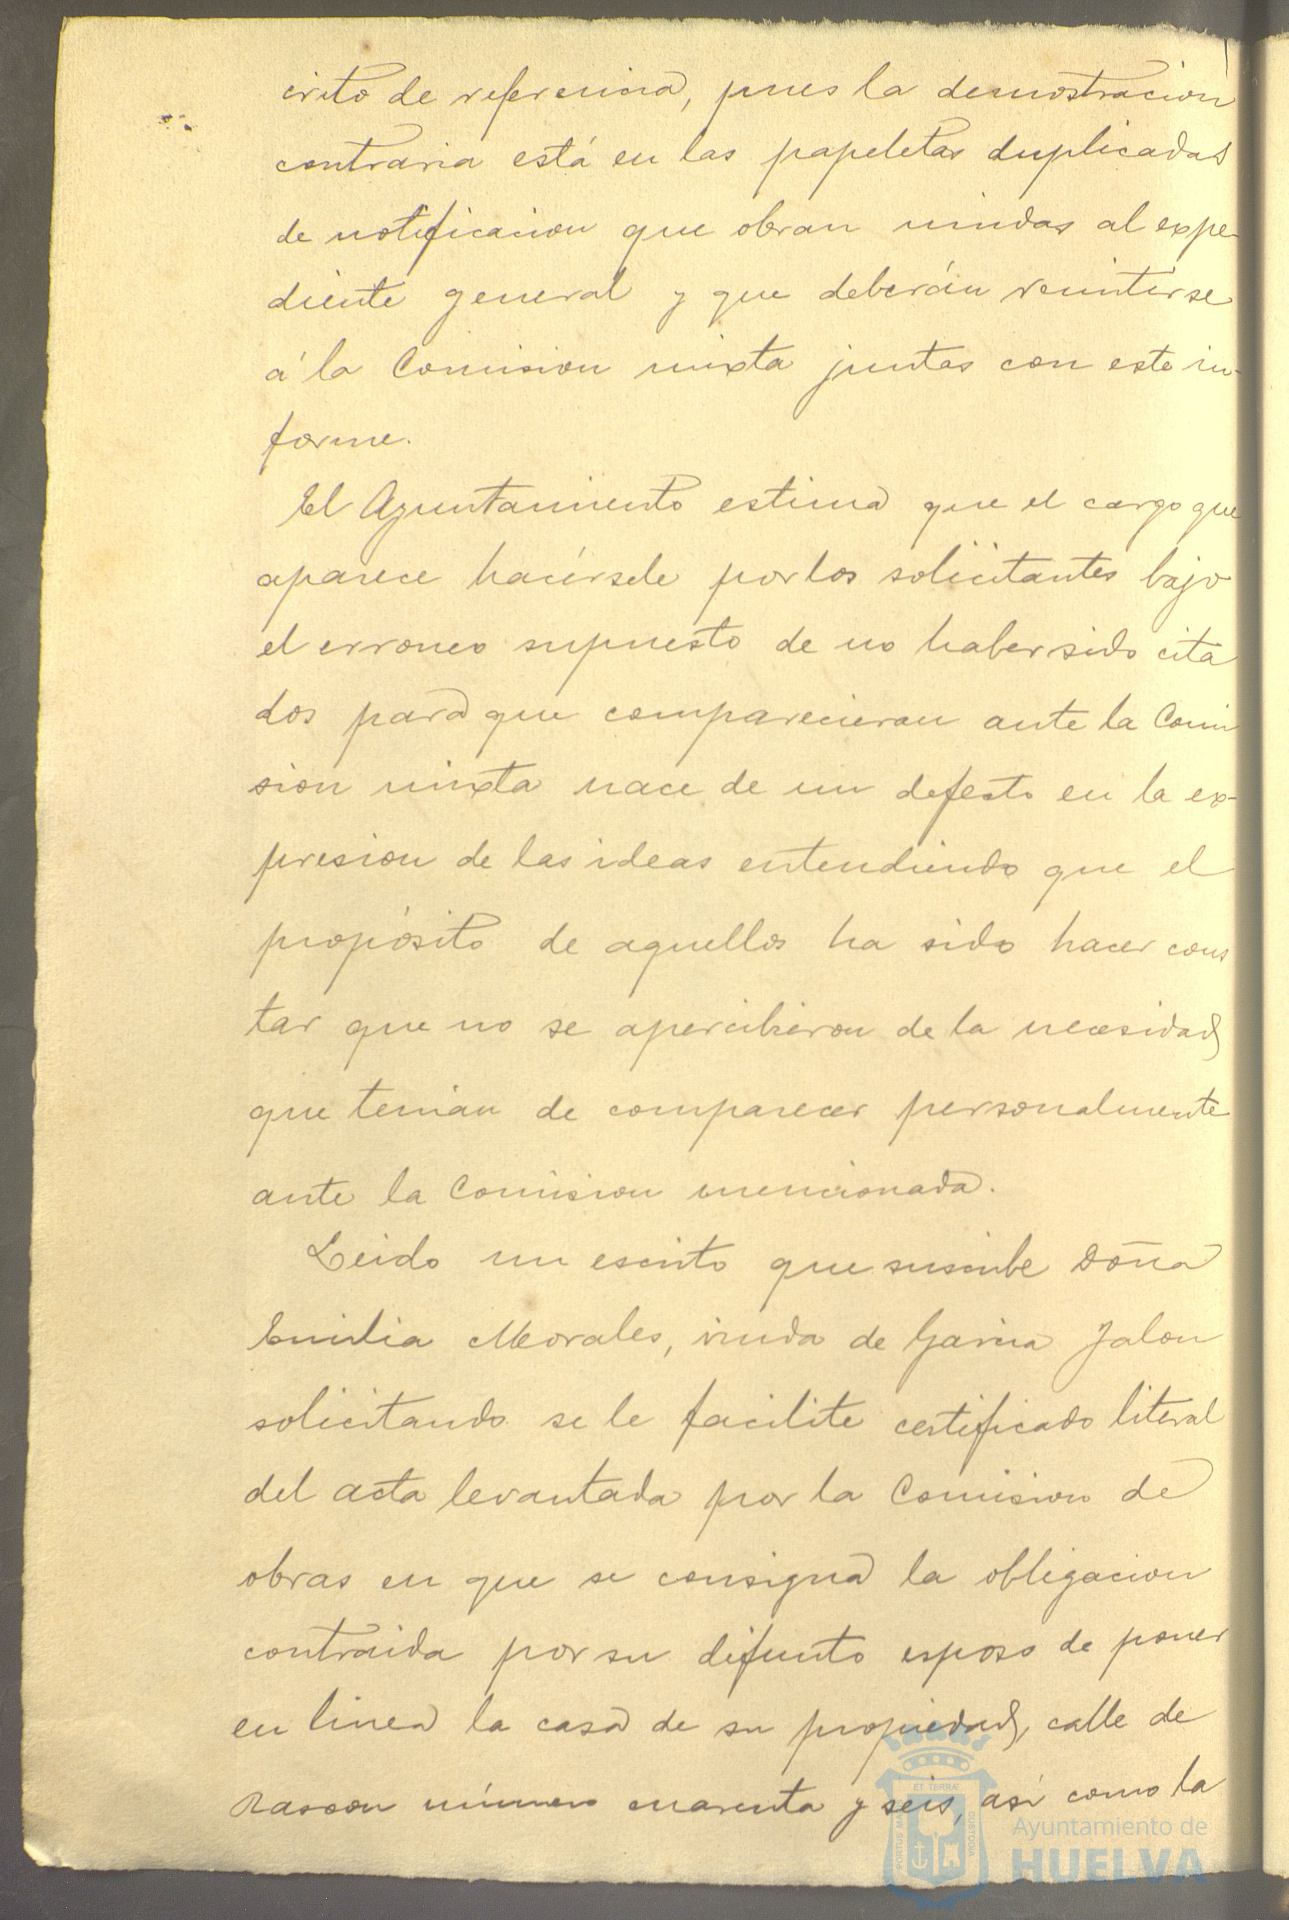 crito de referencia, pues la demostracion
contraria está en las papeletas duplicadas
de notificacion que obran unidas al expe-
diente general y que deberán remitirse
á la Comision mixta juntas con este in-
forme.
El Ayuntamiento estima que el cargo que
aparece hacérsele por los solicitantes bajo
el erroneo supuesto de no haber sido cita
dos para que comparecieran ante la Comi
sion mixta nace de un defecto en la ex-
presion de las ideas entendiendo que el
propósito de aquellos ha sido hacer cons
tar que no se apercibieron de la necesidad
que tenian de comparecer personalmente
ante la Comision mencionada.
Leido un escrito que suscribe Doña
Emilia Morales, viuda de Garcia Jalon
solicitando se le facilite certificado literal
del acta levantada por la Comision de
obras en que se consigna la obligacion
contraida por su difunto esposo de poner
en linea la casa de su propiedad, calle de
Rascon número cuarenta y seis, asi como la
PORTUS MARIS ET TERRÆ CUSTODIA
Ayuntamiento de
HUELVA